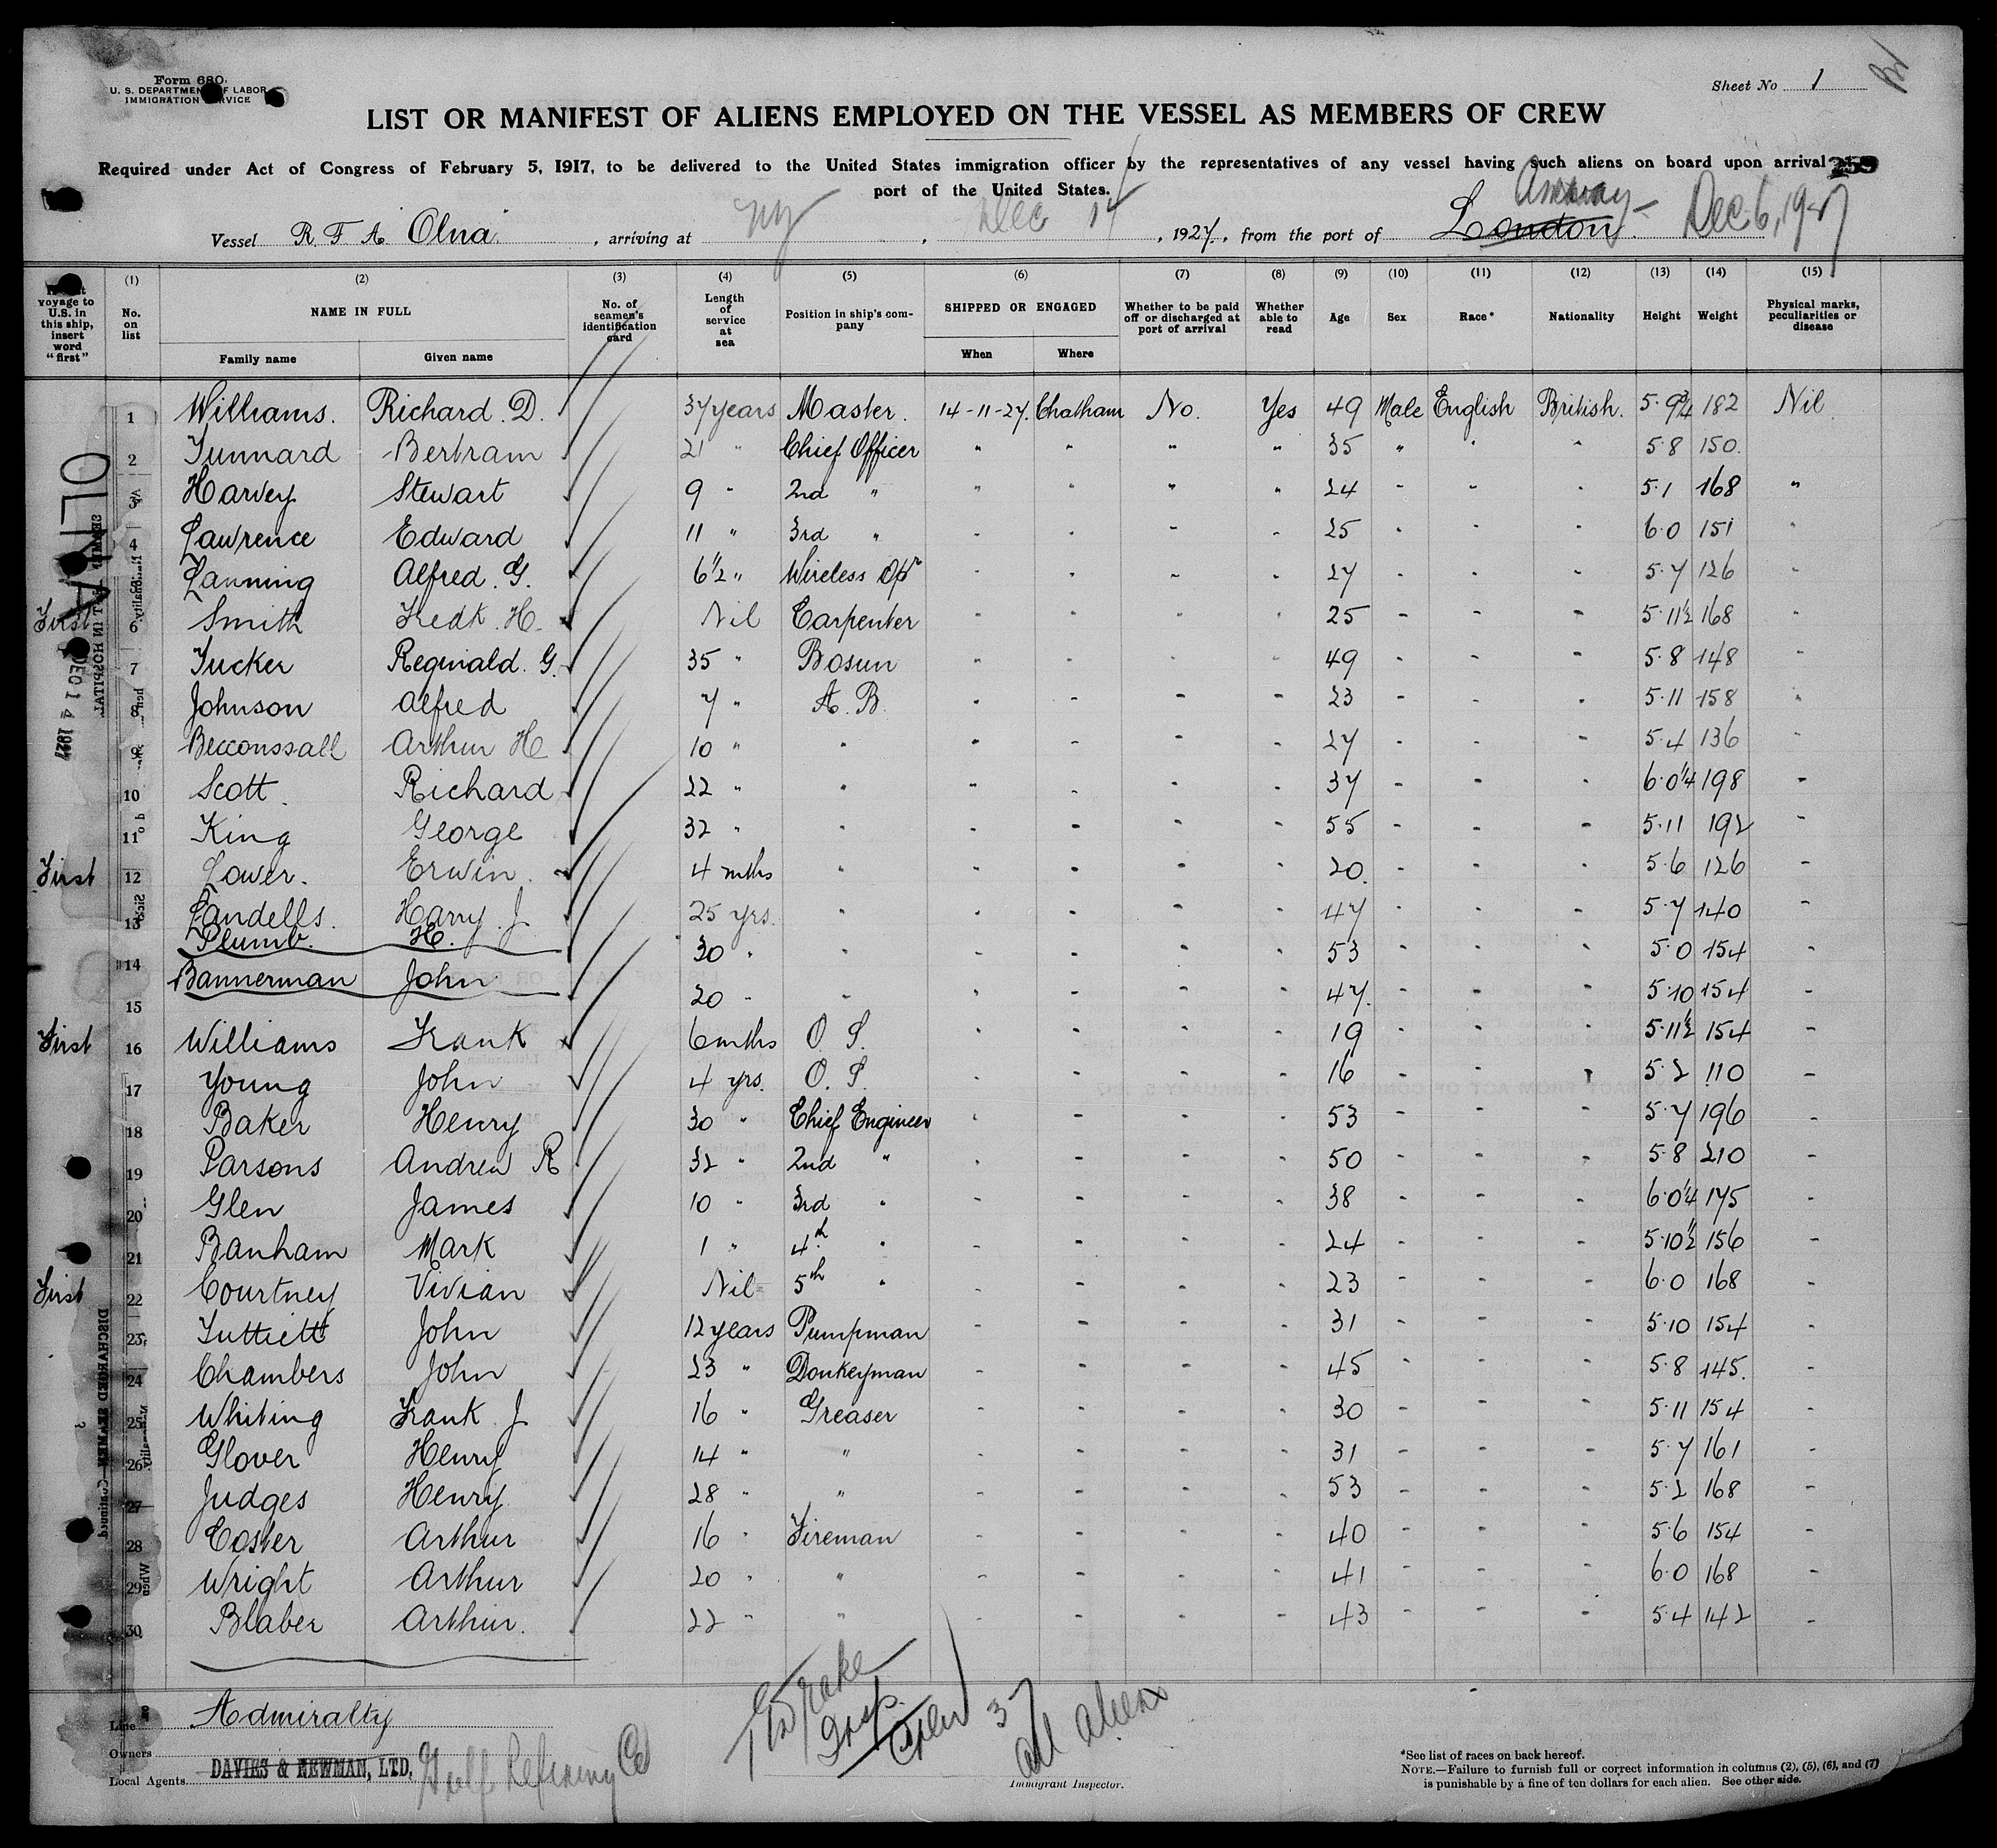 Form 680.
U. S. DEPARTMENT OF LABOR
IMMIGRATION SERVICE
Sheet No 1
LIST OR MANIFEST OF ALIENS EMPLOYED ON THE VESSEL AS MEMBERS OF CREW
Required under Act of Congress of February 5, 1917, to be delivered to the United States immigration officer by the representatives of any vessel having such aliens on board upon arrival
259
port of the United States.
Vessel R F A "Olna" , arriving at NY , Dec 14 , 1927, from the port of London Dec 6, 1927
voyage to U.S. in this ship, insert word "first"
(1) No. on list
(2) NAME IN FULL
Family name Given name
(3) No. of seamen's identification card
(4) Length of service at sea
(5) Position in ship's company
(6) SHIPPED OR ENGAGED
When Where
(7) Whether to be paid off or discharged at port of arrival
(8) Whether able to read
(9) Age
(10) Sex
(11) Race*
(12) Nationality
(13) Height
(14) Weight
(15) Physical marks, peculiarities or disease
1 Williams. Richard. D. 37 years Master. 14-11-27. Chatham No. Yes 49 Male English British. 5·9¾ 182 Nil
2 Tunnard Bertram 21 " Chief Officer " " " " 35 " " " 5·8 150.
3 Harvey Stewart 9 " 2nd " " " " " 24 - " - 5·1 168 "
4 Lawrence Edward 11 " 3rd " - - - - 25 - - - 6·0 151 "
5 Lanning Alfred. G. 6½ " Wireless Opr - - - - 27 - - - 5·7 126 "
First 6 Smith Fredk. H. Nil Carpenter - - - - 25 - - - 5·11½ 168 "
7 Tucker Reginald. G. 35 " Bosun - - - - 49 - - - 5·8 148 "
8 Johnson Alfred 7 " A. B. - - - - 23 - - - 5·11 158 "
9 Becconssall Arthur H 10 " " - - - - 27 - - - 5·4 136 "
10 Scott Richard 22 " " - - - - 37 - - - 6·0¼ 198 -
11 King George 32 " " - - - - 55 - - - 5·11 192 -
First 12 Lower. Erwin. 4 mths " - - - - 20. - - - 5·6 126 -
13 Landells. Harry. J 25 yrs. " - - - - 47 - - - 5·7 140 -
14 Plumb. H. 30 " " - - - - 53 - - - 5·0 154 -
15 Bannerman John 20 " " - - - - 47. - - - 5·10 154 -
First 16 Williams Frank 6 mths O. S. - - - - 19 - - - 5·11½ 154 -
17 Young John 4 yrs. O. S. - - - - 16 - - - 5·2 110 -
18 Baker Henry 30 " Chief Engineer - - - - 53 - - - 5·7 196 -
19 Parsons Andrew R 32 " 2nd " - - - - 50 - - - 5·8 210 -
20 Glen James 10 " 3rd " - - - - 38 - - - 6·0¼ 175 -
21 Banham Mark 1 " 4th " - - - - 24 - - - 5·10½ 156 -
First 22 Courtney Vivian Nil 5th " - - - - 23 - - - 6·0 168 -
23 Tuttiett John 12 years Pumpman - - - - 31 - - - 5·10 154 -
24 Chambers John 23 " Donkeyman - - - - 45 - - - 5·8 145. -
25 Whiting Frank J 16 " Greaser - - - - 30 - - - 5·11 154 -
26 Glover Henry 14 " " - - - - 31 - - - 5·7 161 -
27 Judges Henry 28 " " - - - - 53 - - - 5·2 168 -
28 Easter Arthur 16 " Fireman - - - - 40 - - - 5·6 154 -
29 Wright Arthur 20 " " - - - - 41 - - - 6·0 168 -
30 Blaber Arthur. 22 " " - - - - 43 - - - 5·4 142 -
OLNA
DEC 14 1927
DISCHARGED SEAMEN—Continued
Line Admiralty
Owners
Local Agents DAVIES & NEWMAN, LTD. Gulf Refining Co
Drake
Insp.
Crew 37
all aliens
Immigrant Inspector.
*See list of races on back hereof.
NOTE.—Failure to furnish full or correct information in columns (2), (5), (6), and (7)
is punishable by a fine of ten dollars for each alien. See other side.